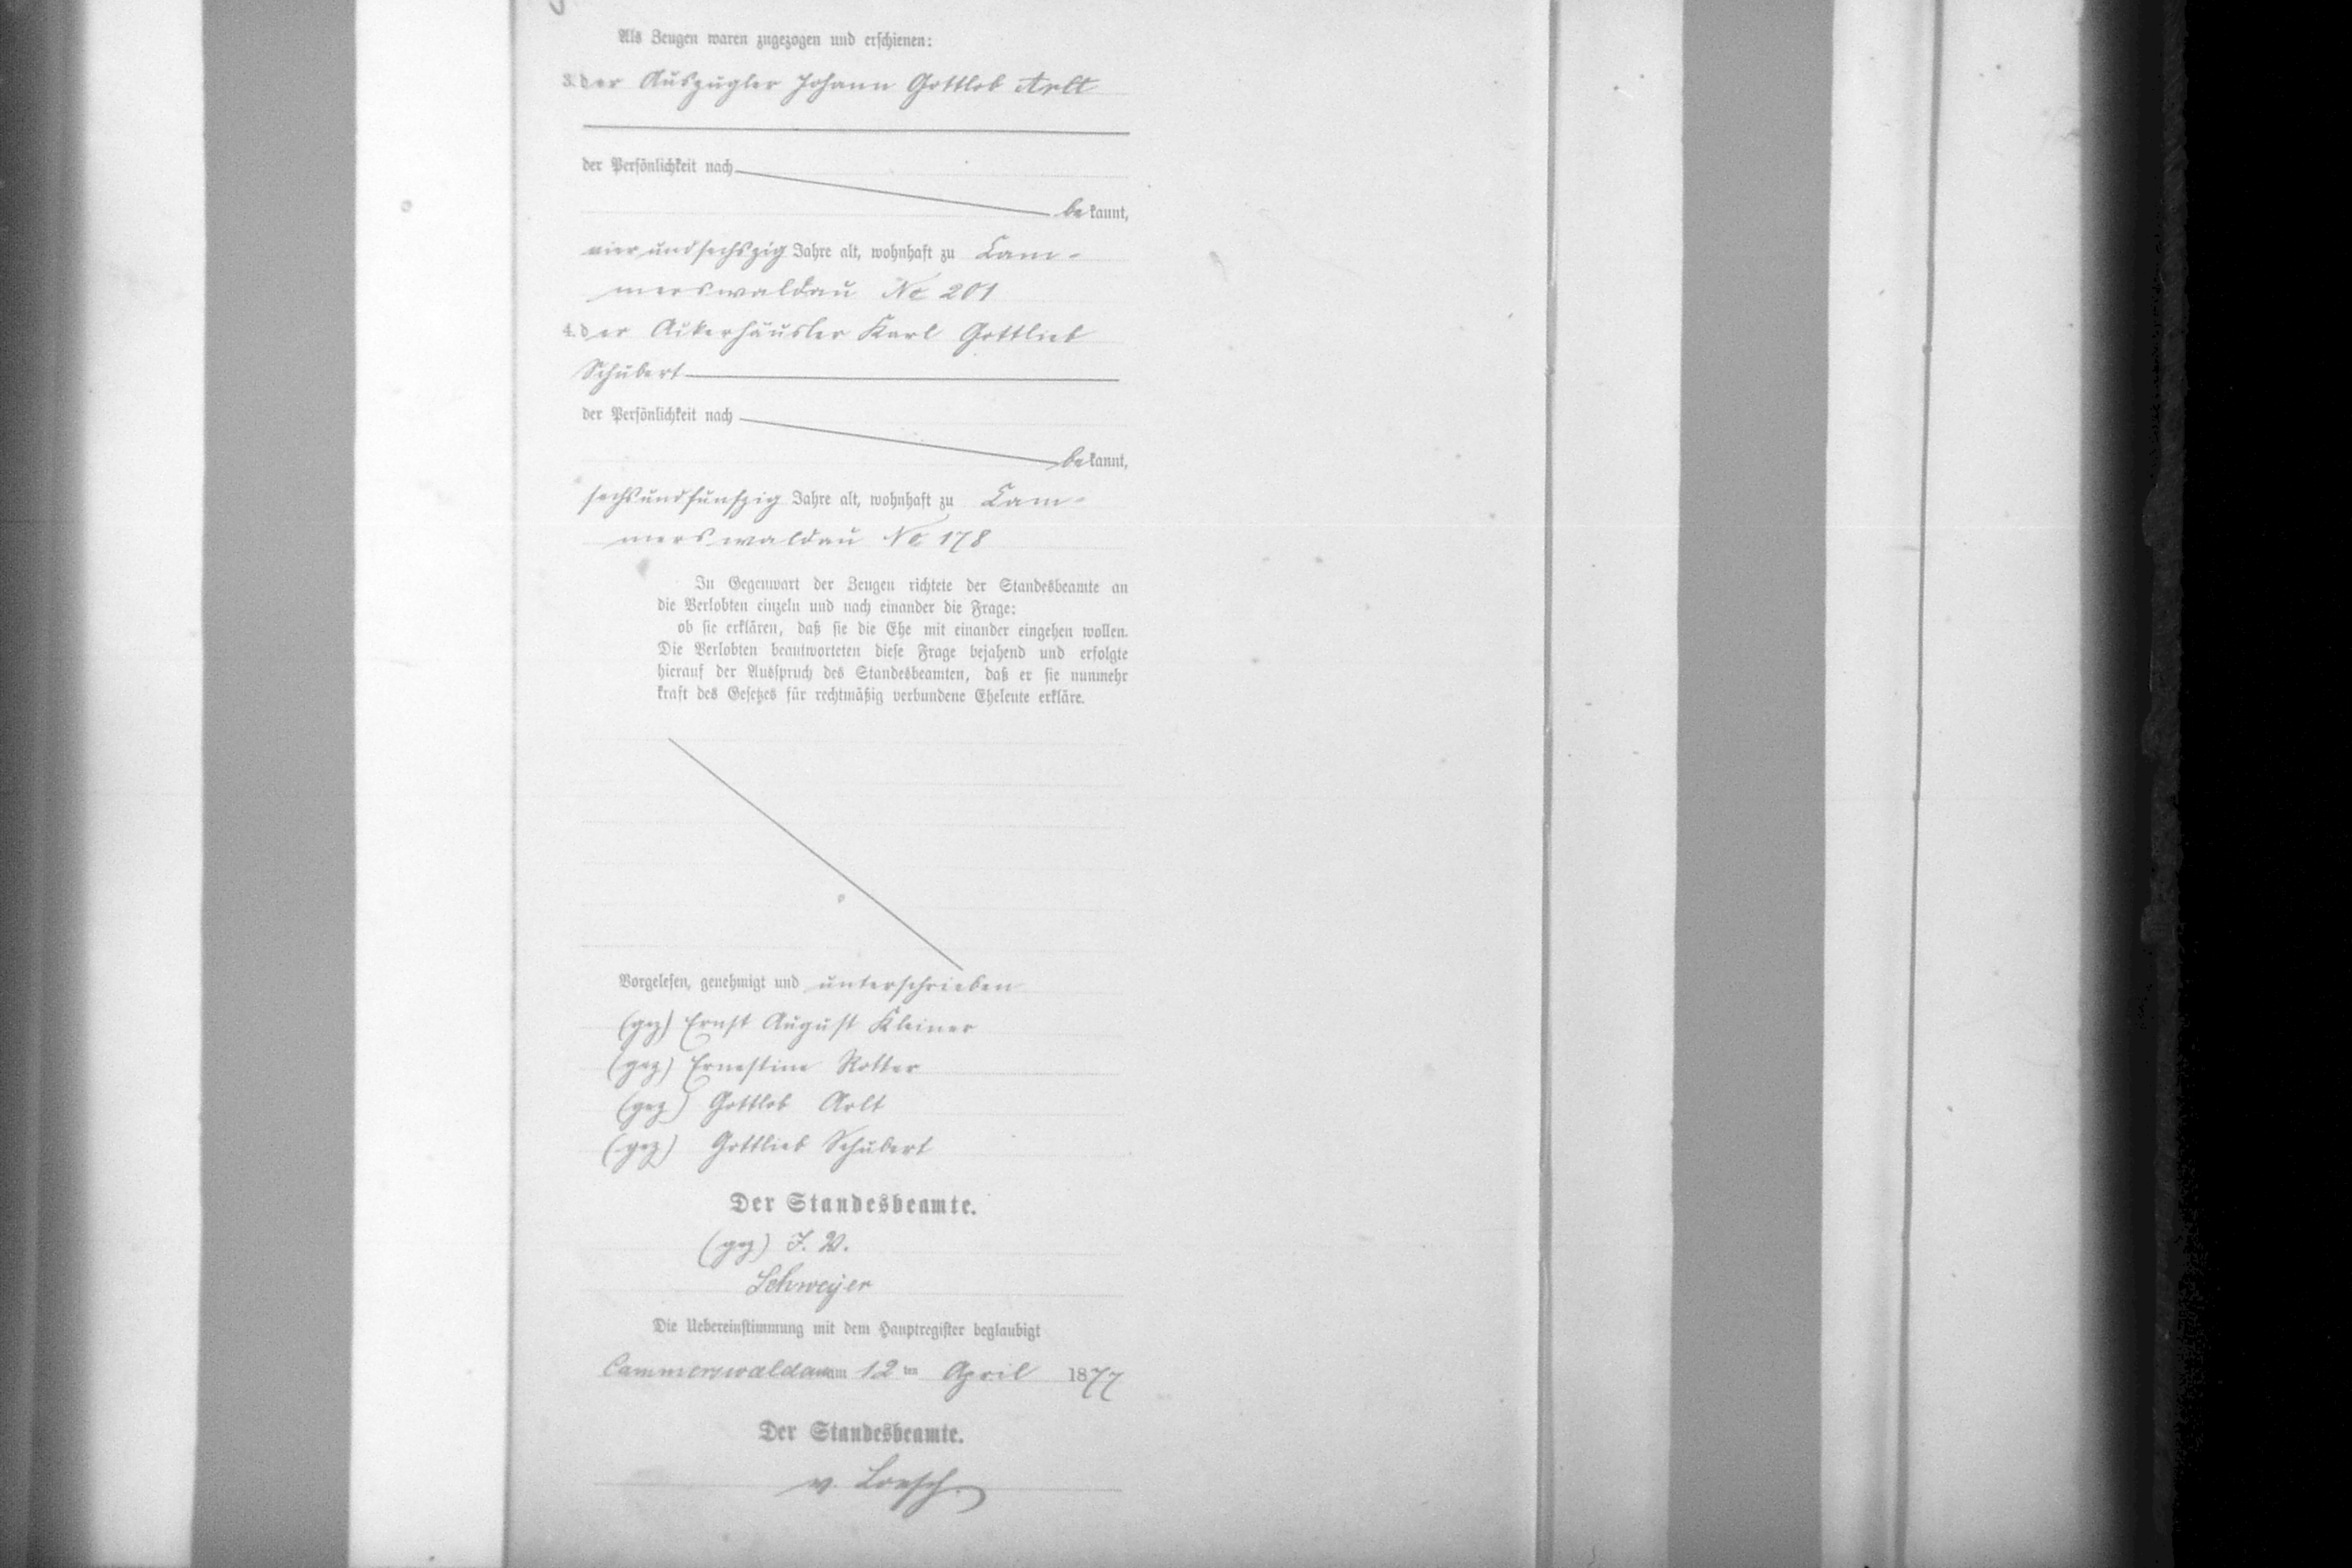 Als Zeugen waren zugezogen und erschienen:
3. der Auszügler Johann Gottlob Arlt
der Persönlichkeit nach
bekannt,
vierundsechszig Jahre alt, wohnhaft zu Cam-
merswaldau No 201
4. der Ackerhäusler Karl Gottlieb
Schubert
der Persönlichkeit nach
bekannt,
sechsundfünfzig Jahre alt, wohnhaft zu Cam-
merswaldau No 178
In Gegenwart der Zeugen richtete der Standesbeamte an
die Verlobten einzeln und nach einander die Frage:
ob sie erklären, daß sie die Ehe mit einander eingehen wollen.
Die Verlobten beantworteten diese Frage bejahend und erfolgte
hierauf der Ausspruch des Standesbeamten, daß er sie nunmehr
kraft des Gesetzes für rechtmäßig verbundene Eheleute erkläre.
Vorgelesen, genehmigt und unterschrieben
(gez) Ernst August Kleiner
(gez) Ernestine Rotter
(gez) Gottlob Arlt
(gez) Gottlieb Schubert
Der Standesbeamte.
(gez) I. V.
Schweijer
Die Uebereinstimmung mit dem Hauptregister beglaubigt
Cammerswaldau am 12 ten April 1877
Der Standesbeamte.
v. Loesch